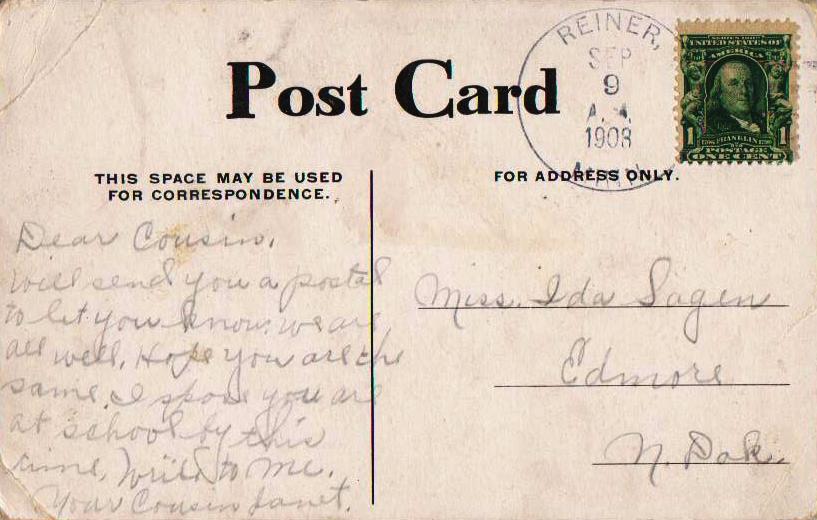 Post Card
REINER,
SEP
9
A.M.
1908
MINN.
SERIES 1902
UNITED STATES OF
AMERICA
1 FRANKLIN 1
POSTAGE
ONE CENT
THIS SPACE MAY BE USED
FOR CORRESPONDENCE.
FOR ADDRESS ONLY.
Dear Cousin,
will send you a postal
to let you know we are
all well. Hope you are the
same. I spose you are
at school by this
time. Write to me.
Your Cousin Janet.
Miss. Ida Sagen
Edmore
N. Dak.